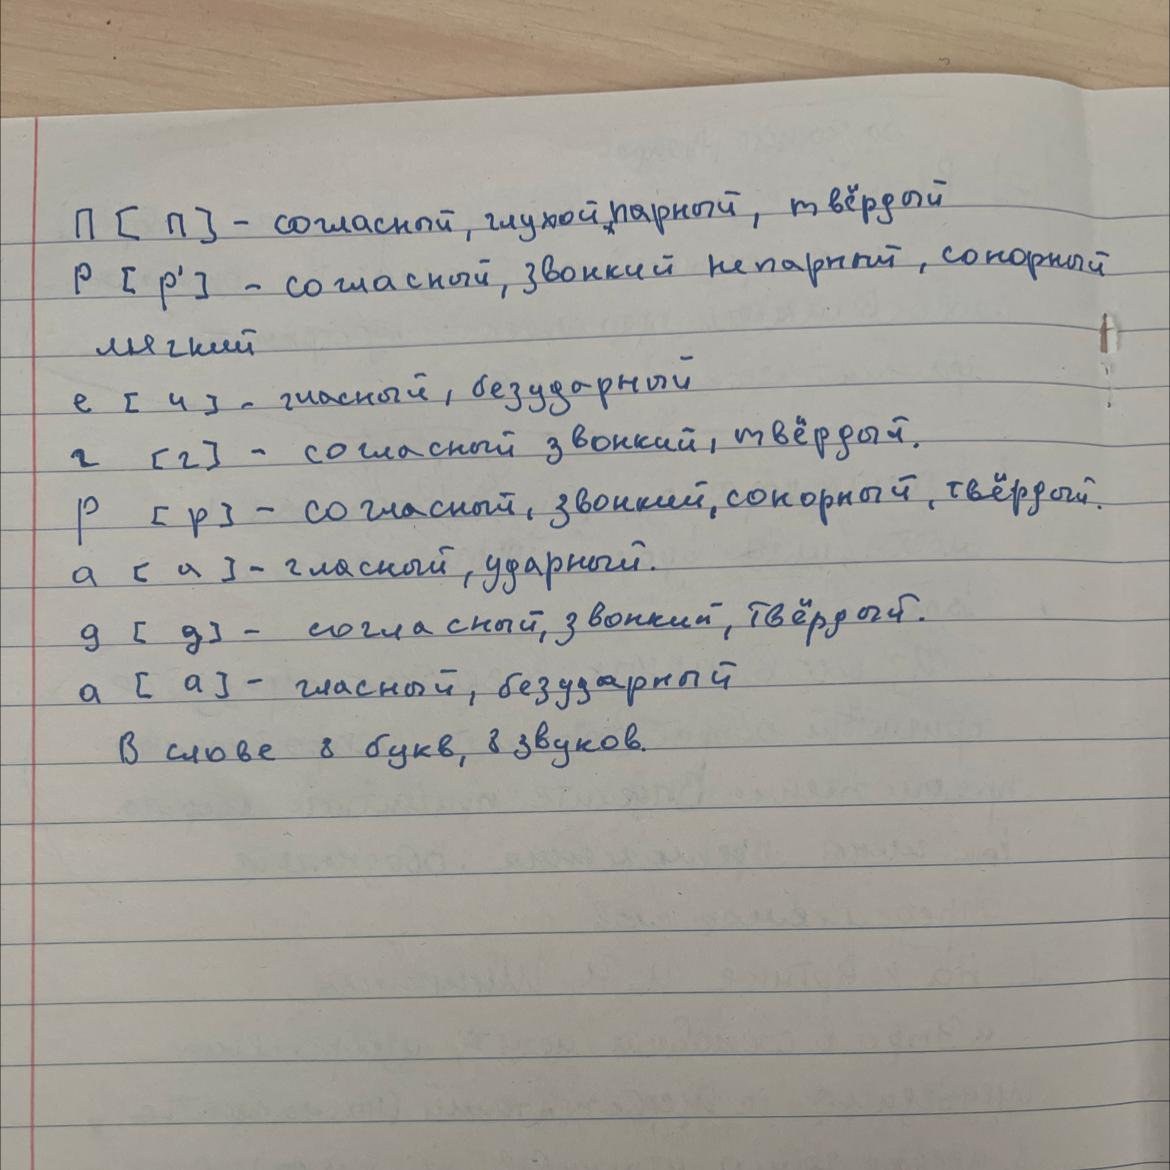 П [ п ] - согласный, глухой, парный, твёрдый
р [ р' ] - согласный, звонкий непарный, сонорный
мягкий
е [ и ] - гласный, безударный
г [ г ] - согласный звонкий, твёрдый.
р [ р ] - согласный, звонкий, сонорный, твёрдый.
а [ а ] - гласный, ударный.
д [ д ] - согласный, звонкий, твёрдый.
а [ а ] - гласный, безударный
В слове 8 букв, 8 звуков.